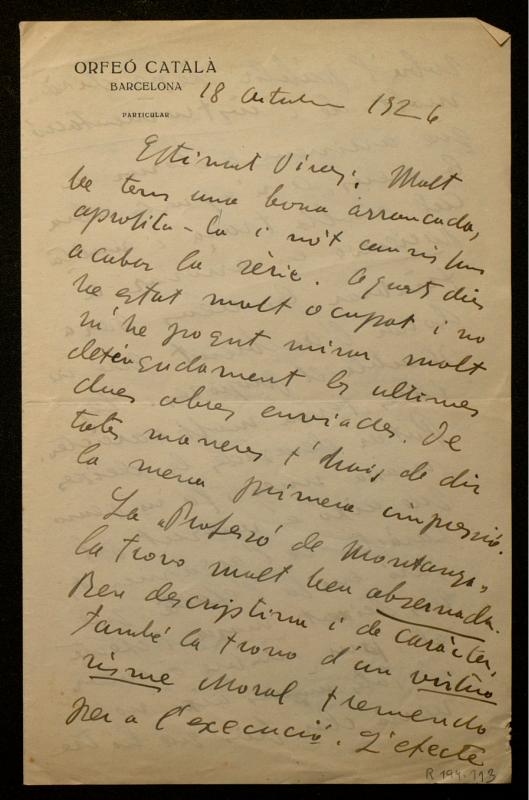 ORFEÓ CATALÀ
BARCELONA
PARTICULAR
18 octubre 1926
Estimat Vives: Molt
be tens una bona arrancada,
aprofita-la i no't cansis fins
acabar la sèrie. Aquets dies
he estat molt ocupat i no
m'he pogut mirar molt
detingudament les ultimes
dues obres enviades. De
totes maneres t'haig de dir
la meva primera impressió.
La "Professó de Montanya"
la trovo molt ben observada.
Ben descriptiva i de caràcter,
també la trovo d'un virtuo
sisme Moral tremendo
per a l'execució. L'efecte
R 194-113